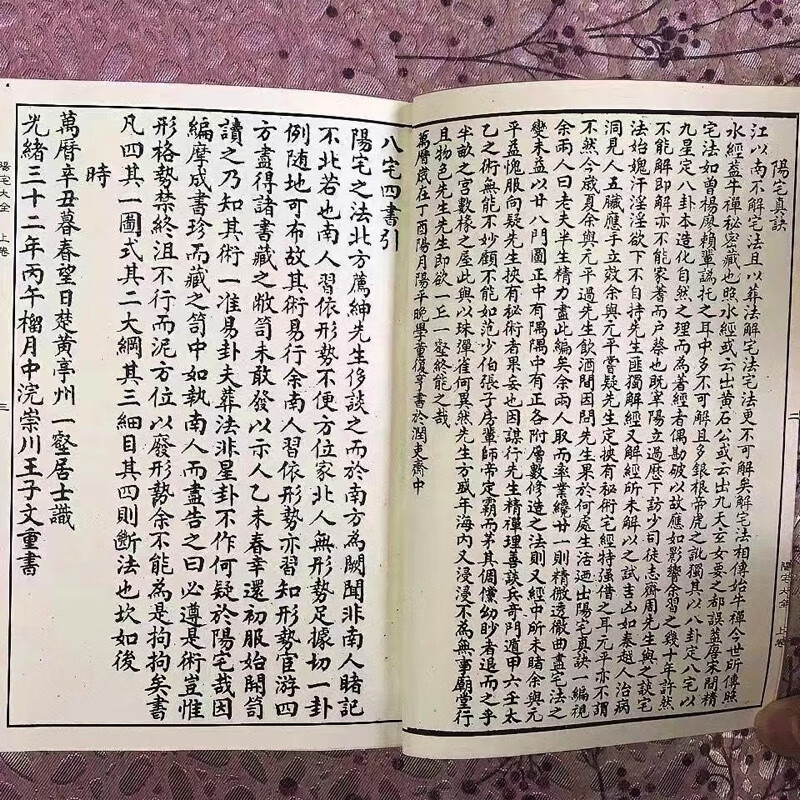 陽宅真訣
江以南不解宅法且以葬法解宅法宅法更不可解矣解宅法相傳始牛禪今世所傳照
水經蓋牛禪秘密藏也照水經或云出黄石公或云出九天玄女要之都誤蓋唐宋間精
宅法如曽楊廖賴軰譌托之耳中多不可解且多銀根帝虎之訛獨其以八卦定八宅以
九星定八卦本造化自然之理而為著經者偶勘破以故應如影響余習之幾十年許然
不能解即解亦不能家著而户蔡也既宰陽立過歷下訪少司徒志齋周先生與之談宅
法始媿汗淫淫欲下不自持先生匪獨解經又解經所未解以之試吉凶如秦越人治病
洞見人五臟應手立效余與元平嘗疑先生定挾有秘術宅經特强借之耳元平亦不謂
不然今歲夏余與元平過先生飲酒間因問先生果於何處生活迺出陽宅真訣一編視
余兩人曰老夫半生精力盡此編矣余兩人取而率業纔廿一則精微透徹曲盡宅法之
變未益以廿八門圖正中有隅隅中有正各附層數修造之法則又經中所未睹余與元
平益愧服向疑先生挾有秘術者果妄也因謀行先生精禪理善談兵竒門遁甲六壬太
乙之術無能不妙顧不能如范少伯張子房軰師帝定霸而第其倜儻幼眇者退而之乎
半畝之宮數椽之屋此與以珠彈雀何異然先生方盛年海内又浸浸不為無事廟堂行
且物色先生先生即欲一丘一壑終能之哉
萬曆歲在丁酉陽月陽平晚學董復亨書於潤吏齋中
陽宅大全 上卷
二
八宅四書引
陽宅之法北方薦紳先生侈談之而於南方為闕聞非南人睹記
不北若也南人習依形勢不便方位家北人無形勢足據切一卦
例随地可布故其術易行余南人習依形勢亦習知形勢宦游四
方盡得諸書藏之敝笥未敢發以示人乙未春幸還初服始開笥
讀之乃知其術一准易卦夫葬法非星卦不作何疑於陽宅哉因
編摩成書珍而藏之笥中如執南人而盡告之曰必遵是術豈惟
形格勢禁終沮不行而泥方位以廢形勢余不能為是拘拘矣書
凡四其一圖式其二大綱其三細目其四則斷法也坎如後
時
萬曆辛丑暮春望日楚黄亭州一壑居士識
光緒三十二年丙午榴月中浣崇川王子文重書
陽宅大全 上卷
三